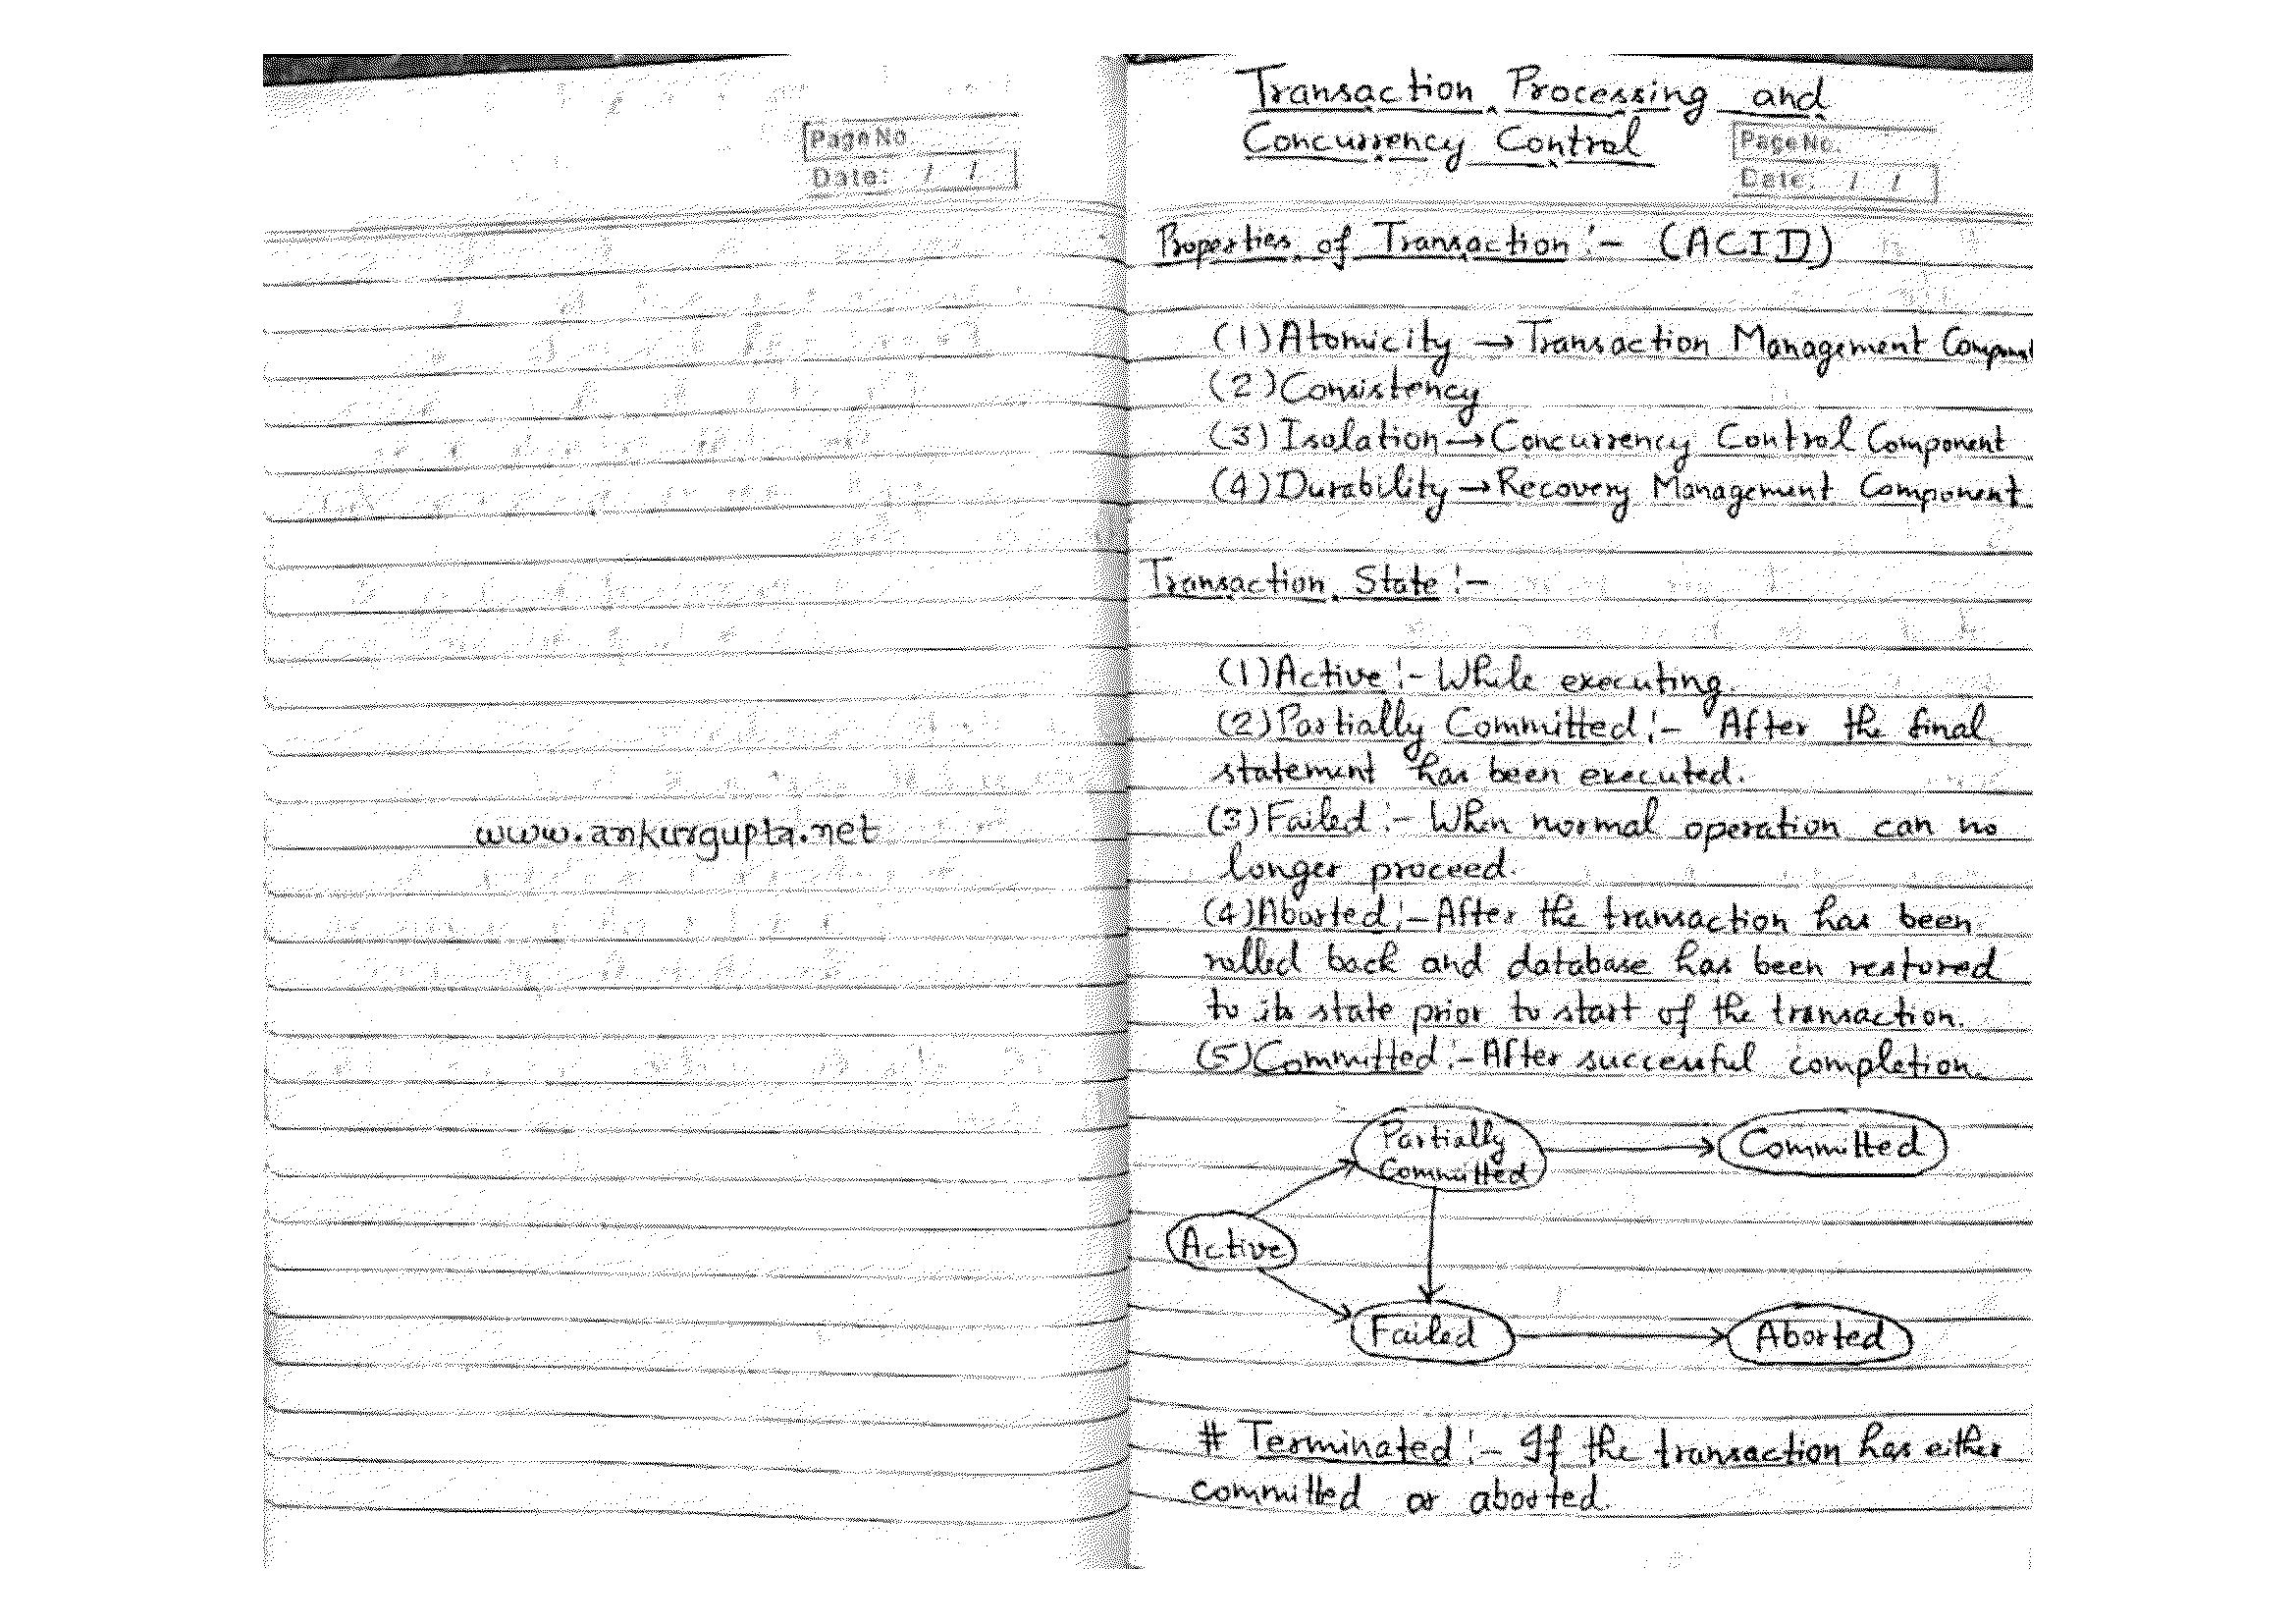 Page No
Date: / /
www.ankurgupta.net
Transaction Processing and
Concurrency Control
Page No.
Date: / /
Properties of Transaction :- (ACID)
(1) Atomicity → Transaction Management Component
(2) Consistency
(3) Isolation → Concurrency Control Component
(4) Durability → Recovery Management Component
Transaction State :-
(1) Active :- While executing.
(2) Partially Committed :- After the final
statement has been executed.
(3) Failed :- When normal operation can no
longer proceed.
(4) Aborted :- After the transaction has been
rolled back and database has been restored
to its state prior to start of the transaction.
(5) Committed :- After successful completion.
Partially
Committed
Committed
Active
Failed
Aborted
# Terminated :- If the transaction has either
committed or aborted.